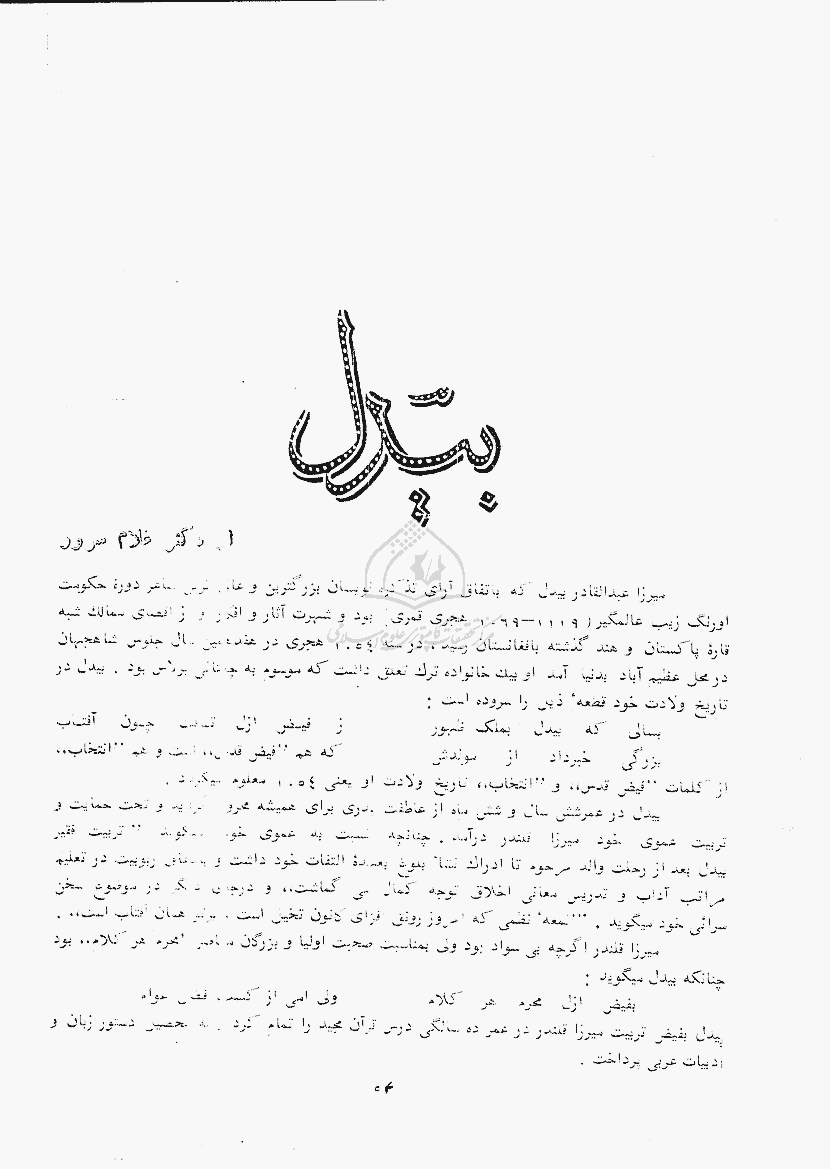 بیدل
دکتر غلام سرور
میرزا عبدالقادر بیدل که باتفاق آرای تذکره نویسان بزرگترین و شاعر دورهٔ حکومت
اورنگ زیب عالمگیر ۱۱۱۹–۱۰۶۹ هجری قمری بود و شهرت آثار و از اقصای ممالك شبه
قارهٔ پاکستان و هند گذشته بافغانستان رسید، در سنه ۱۰۵۴ هجری در هفدهمین سال جلوس شاهجهان
در محل عظیم آباد بدنیا آمد او بیك خانواده ترك تعلق داشت که موسوم به چغتائی برلاس بود . بیدل در
تاریخ ولادت خود قطعهٔ ذیل را سروده است :
بسالی که بیدل بملك ظهور ز فیض ازل چون آفتاب
بزرگی خبرداد از مولدش که هم ”فیض قدس،، است و هم ”انتخاب،،
از کلمات ”فیض قدس،، و ”انتخاب،، تاریخ ولادت او یعنی ۱۰۵۴ معلوم میگردد .
بیدل در عمرشش سال و شش ماه از عاطفت پدری برای همیشه محروم گردید و تحت حمایت و
تربیت عموی خود میرزا قلندر درآمد . چنانچه نسبت به عموی خود میگوید ”تربیت فقیر
بیدل بعد از رحلت والد مرحوم تا ادراك نشاٴ بلوغ بعهدهٔ التفات خود داشت و ربوبیت در تعلیم
مراتب آداب و تدریس معانی اخلاق توجه کمال می گماشت،، و درجای دیگر در موضوع سخن
سرائی خود میگوید . ”لمعهٔ نظمی که امروز رونق فزای کانون تخیل است ، پرتو همان آفتاب است،، .
میرزا قلندر اگرچه بی سواد بود ولی بمناسبت صحبت اولیا و بزرگان معاصر ”محرم هر کلام،، بود
چنانکه بیدل میگوید :
بفیض ازل محرم هر کلام ولی امی از کسب
بیدل بفیض تربیت میرزا قلندر در عمر ده سالگی درس قرآن مجید را تمام کرد و به تحصیل دستور زبان و
ادبیات عربی پرداخت .
۵۴